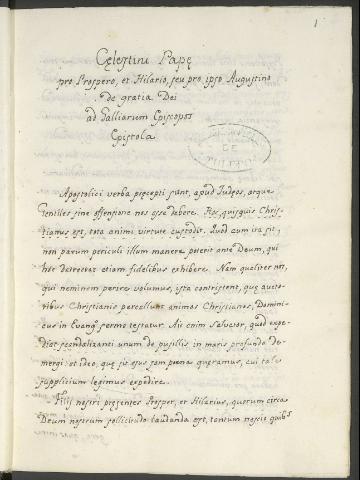 1
Cęlestini Papę
pro Prospero, et Hilario, seu pro ipso Augustino
de gratia Dei
ad Galliarum Episcopos
Epistola
DE
Apostolici verba pręcepti sunt, apud Iudęos, atque
Gentiles sine offensione nos esse debere. Hoc, quisquis Chris-
tianus est, tota animi virtute custodit. Quod cum ita sit,
non parum periculi illum manere poterit ante Deum, qui
hoc detrectat etiam fidelibus exhibere. Nam qualiter nos,
qui neminem perire volumus, ista contristent, quę aucto-
ribus Christianis percellunt animos Christianos, Domini-
cus in Evang. sermo testatur. Ait enim Salvator, quod expe-
diat scandalizanti unum de pusillis in maris profundo de-
mergi: et ideo, quę sit ejus jam poena quęramus, cui tale
supplicium legimus expedire.
Filii nostri pręsentes Prosper, et Hilarius, quorum circa
Deum nostrum sollicitudo laudanda est, tantum nescio quibs